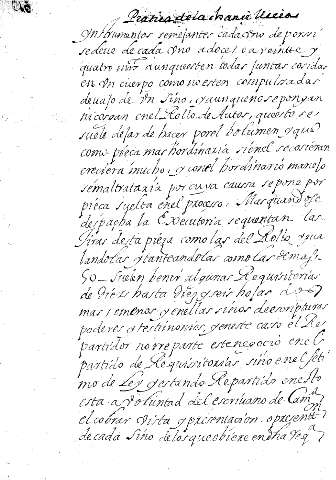 Practica de la chancilleria
Ynstrumentos semejantes cada uno de por si
se deve de cada uno a doce
y a veinte y
quatro mrs. aunque esten todas juntas cosidas
en un cuerpo como no esten compulsadas
devajo de un sino, y aunque no se pongan
ni cosan en el Rollo de Autos, questo se
suele dejar de hacer por el bolumen, y que
como pieça mas hordinaria si en el se cosiera
creciera mucho, y con el hordinario manejo
se maltrataria por cuya causa se pone por
pieça suelta en el proceso. Mas quando se
despacha la Executoria se quentan las
tiras desta pieza como las del Rollo, ygua
landolas y tanteandolas como las demas
50 - Suelen benir algunas Requisitorias
de diez hasta diez y seis hojas
mas o menos, y en ellas sinos de escripturas
poderes o testimonios, y en este caso el Re
partidor no rreparte este negocio en el
partido de Requisitorias sino en el seti
mo de Ley, y estando Repartido en esto
esta a voluntad del escrivano de Cama
el cobrar vista y presentacion. o
de cada sino de los que ubiere en dha